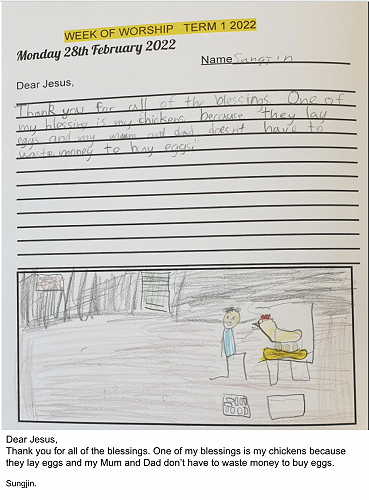 WEEK OF WORSHIP TERM 1 2022
Monday 28th February 2022
Name Sungjin
Dear Jesus,
Thank you for all of the blessings. One of
my blessing is my chickens because they lay
eggs and my mum and dad doesn't have to
waste money to buy eggs.
Dear Jesus,
Thank you for all of the blessings. One of my blessings is my chickens because
they lay eggs and my Mum and Dad don't have to waste money to buy eggs.
Sungjin.